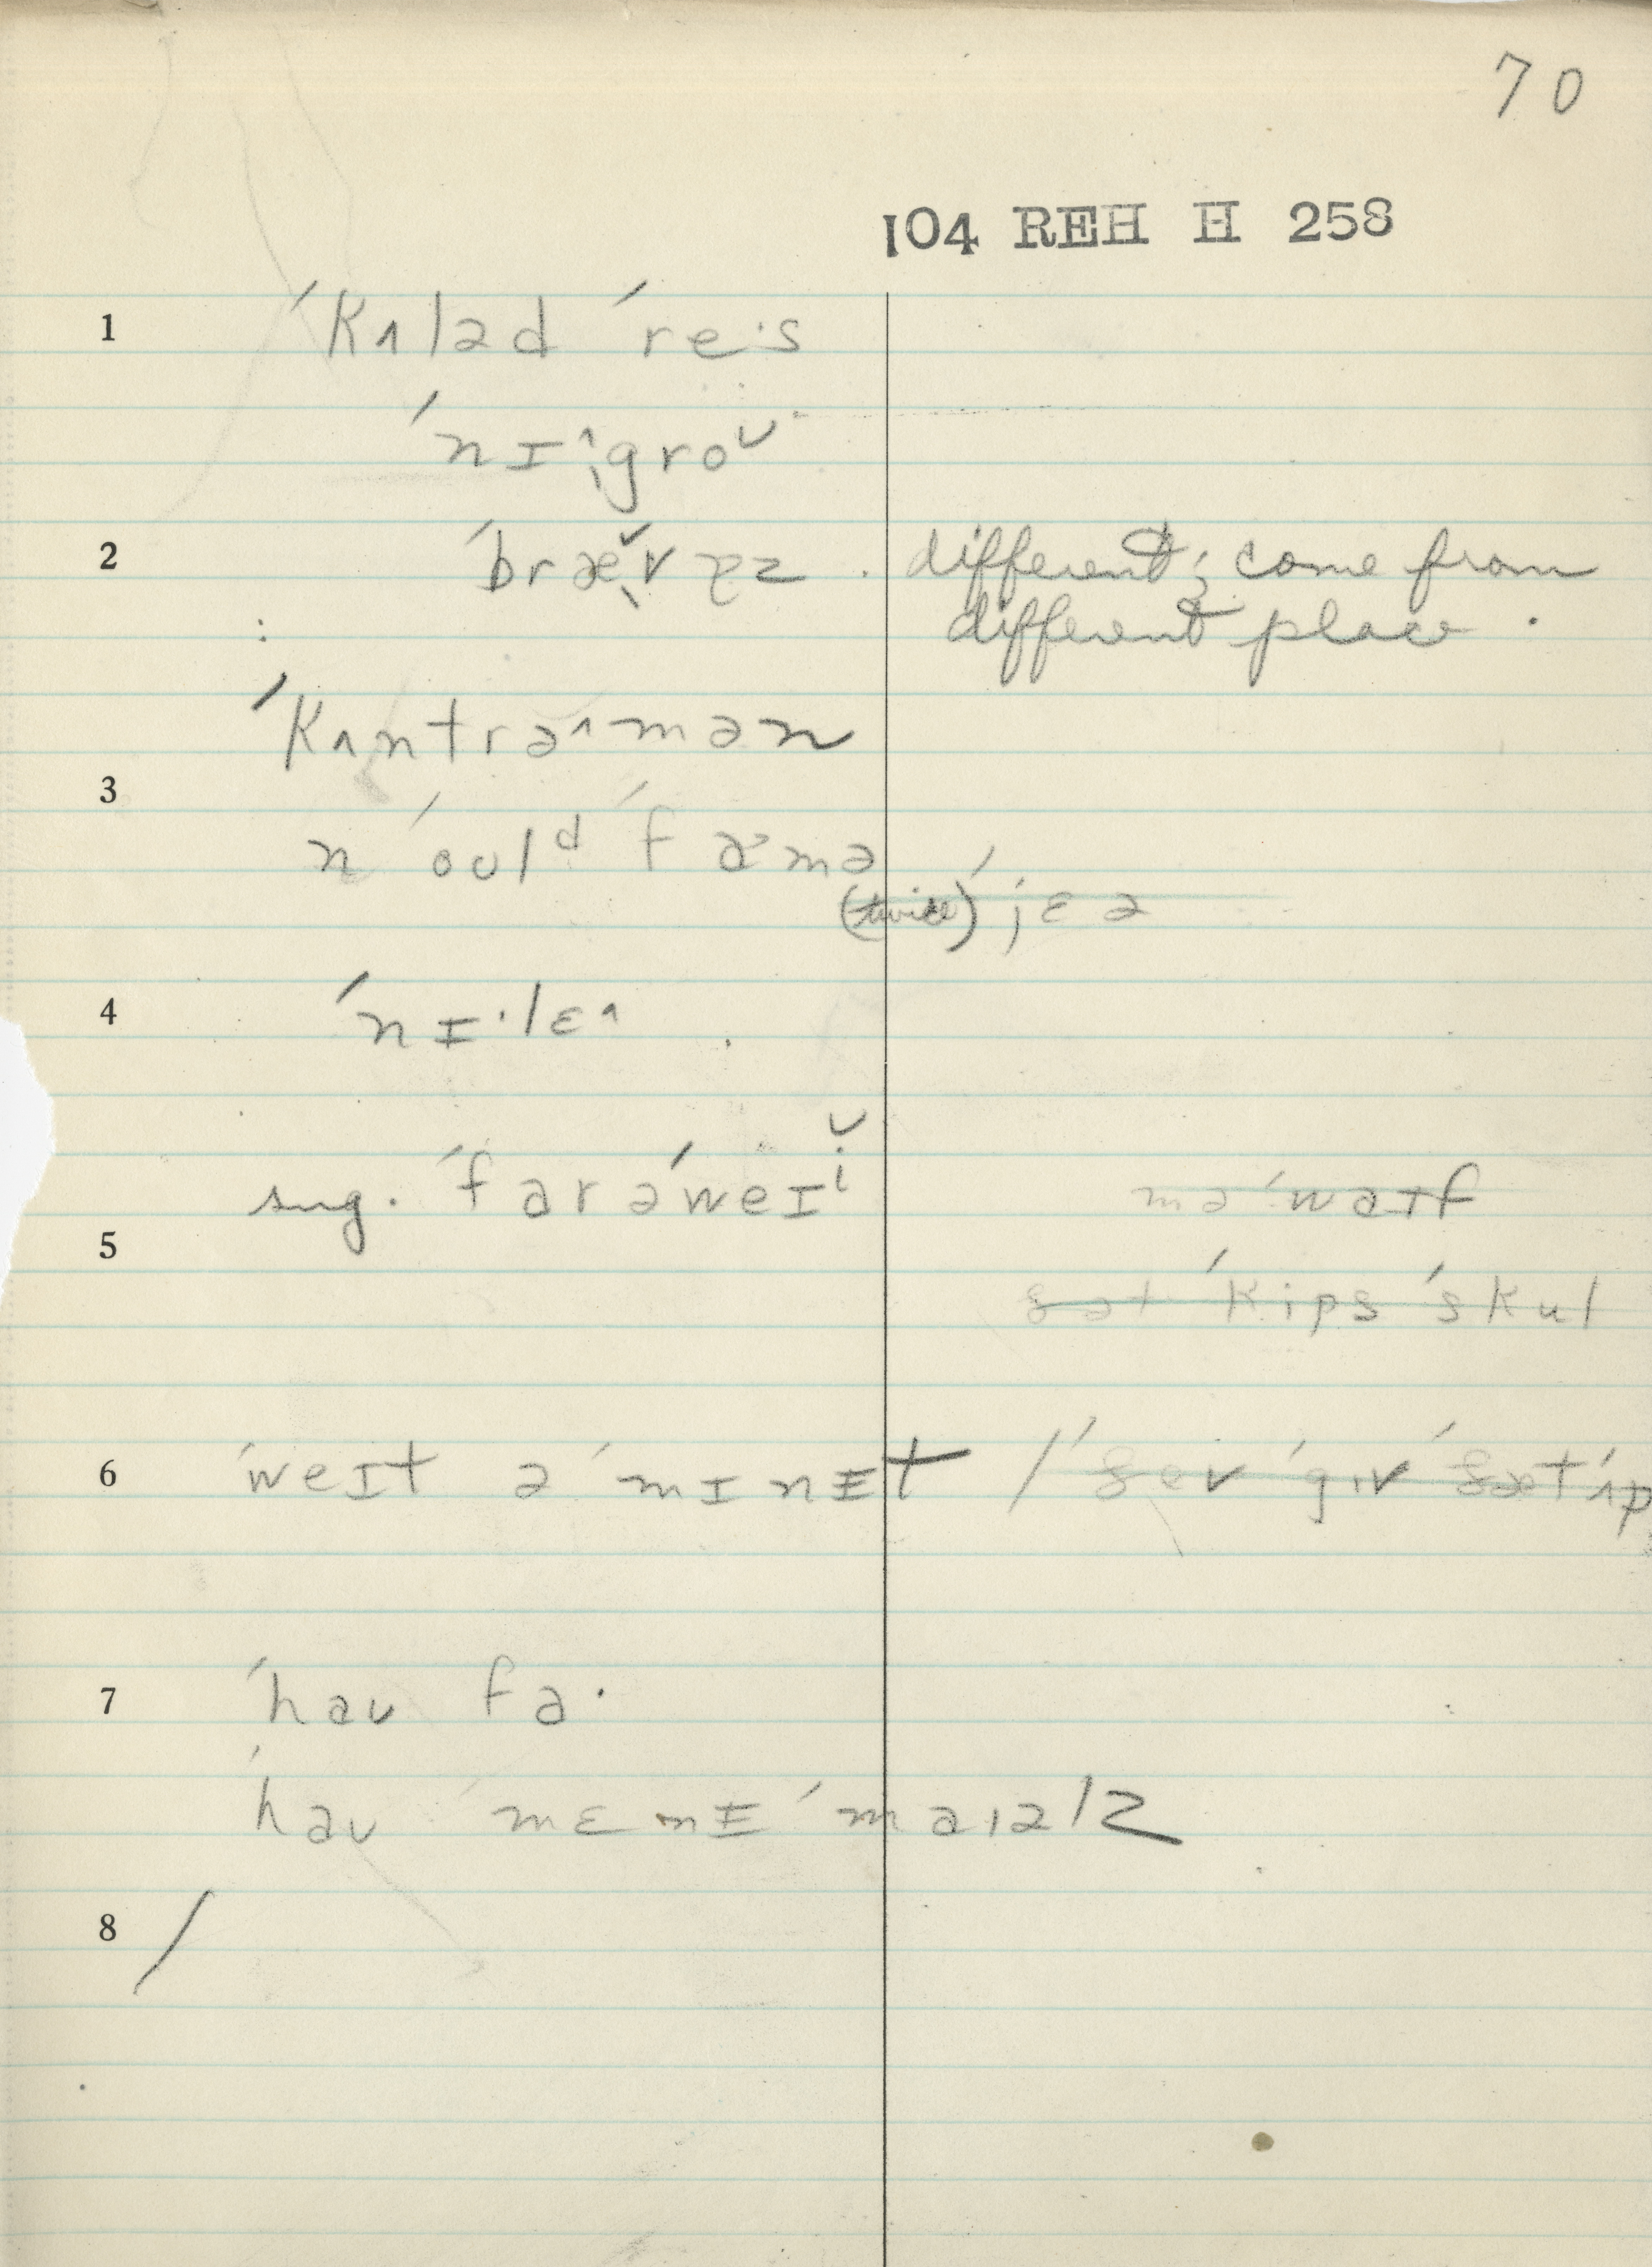 70
104 REH H 258
1 ˈkʌləd ˈre·s
ˈnɪ^groʊ
2 ˈbræˇvɪz . different; come from
different place .
ˈkʌntrə^mən
3
n ˈoʊlᵈ ˈfɑmə
(twice) ˈjɛə
4 ˈnɪ·lɛ^
sug. ˈfar əˈweɪⁱ
5
ma ˈwaɪf
ðat ˈkips ˈskul
6 ˈweɪt ə ˈmɪnɪt / ˈgɪv ˈðæt ˈʌp
7 ˈhaʊ fa·
ˈhaʊ ˈmɛnɪ ˈmaɪəlz
8 /